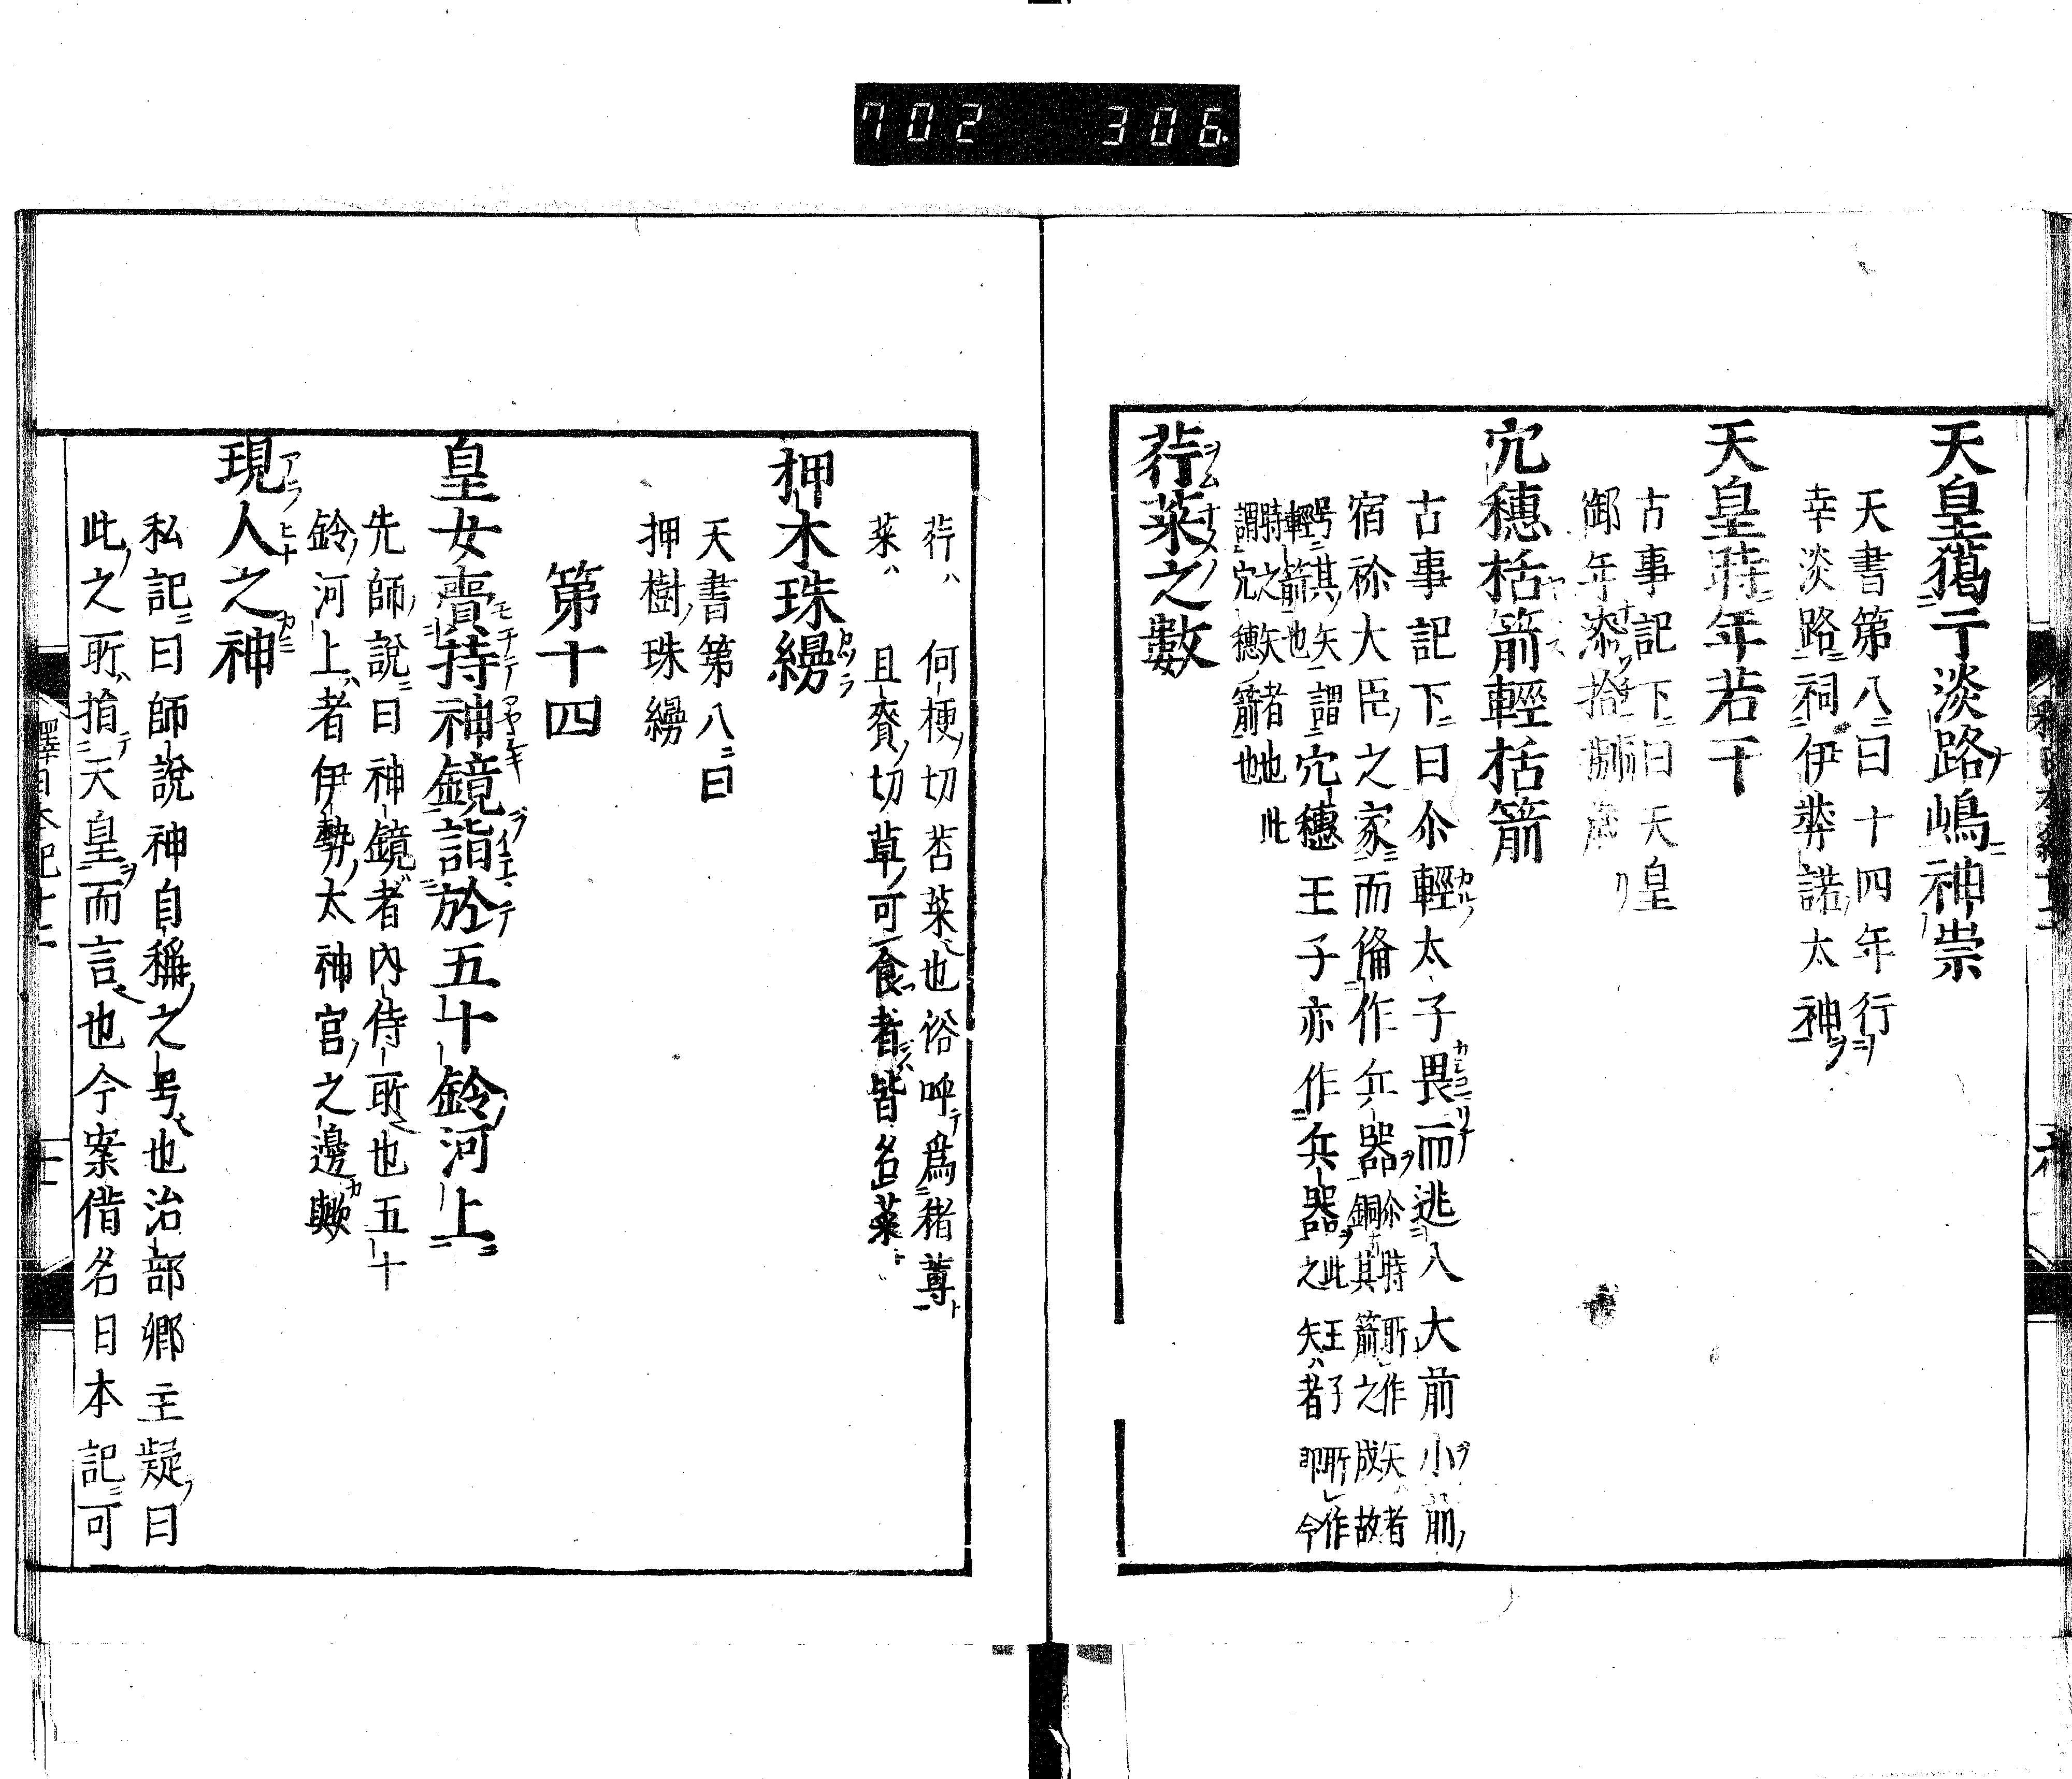 702 306
天皇獦于淡路嶋神祟
天書第八曰十四年行
幸淡路祠伊弉諾太神
天皇時年若干
古事記下曰天皇
御年漆拾捌歳
穴穂括箭輕括箭
古事記下曰尒輕太子畏而逃入大前小前
宿祢大臣之家而俻作兵器尒時所作矢者
銅其箭之成故
号其矢謂
輕箭也
穴穗王子亦作兵器此王子所作
之矢者即今
時之矢者也此
謂穴穗箭也
荇菜之數
荇 何梗切荅菜也俗呼爲猪蓴
菜 且賚切草可食者皆名菜
押木珠縵
天書第八曰
押樹珠縵
第十四
皇女賣持神鏡詣於五十鈴河上
先師說曰神鏡者內侍所也五十
鈴河上者伊勢太神宮之邊歟
現人之神
私記曰師說神自稱之号也治部郷主疑曰
此之所指天皇而言也今案借名日本記可
釋日本紀十二